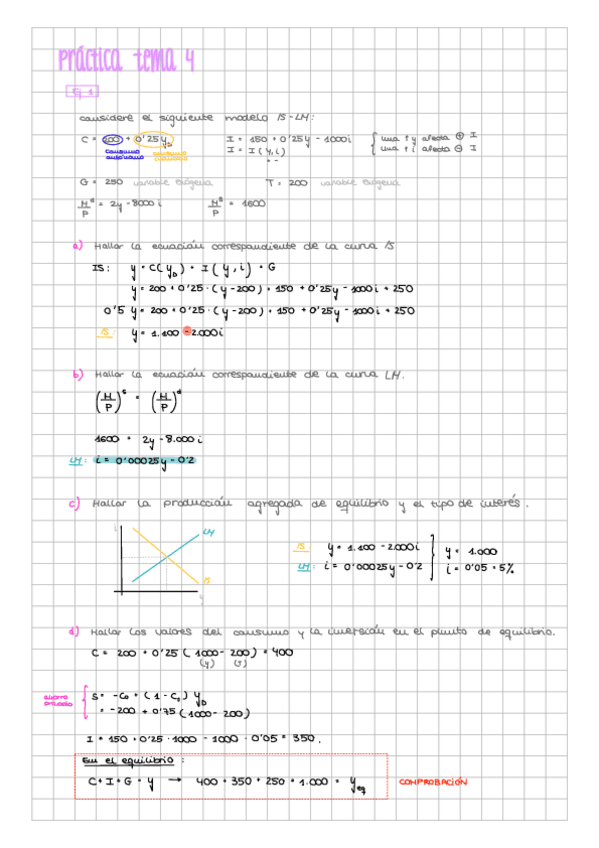 práctica tema 4
Ej 1
considere el siguiente modelo IS-LM:
C = 200 + 0'25 y_D    I = 150 + 0'25y - 1000i    { una ↑ y afecta ⊕ I
consumo autónomo    I = I (y, i)    { una ↑ i afecta ⊖ I
G = 250 variable exógena    T = 200 variable exógena
M^d/P = 2y - 8000 i    M^s/P = 1600
a) Hallar la ecuación correspondiente de la curva IS
IS: y = C(y_D) + I(y, i) + G
y = 200 + 0'25 · (y - 200) + 150 + 0'25y - 1000i + 250
0'5 y = 200 + 0'25 · (y - 200) + 150 + 0'25y - 1000i + 250
IS: y = 1.100 - 2.000i
b) Hallar la ecuación correspondiente de la curva LM.
(M/P)^s = (M/P)^d
1600 = 2y - 8.000 i
LM: i = 0'00025y - 0'2
c) Hallar la producción agregada de equilibrio y el tipo de interés.
i
LM
IS
IS y = 1.100 - 2.000i    y = 1.000
LM: i = 0'00025y - 0'2    i = 0'05 = 5%
d) Hallar los valores del consumo y la inversión en el punto de equilibrio.
C = 200 + 0'25 (1000 - 200) = 400
(y) (T)
ahorro privado { S = -C₀ + (1 - C₁) y_D
= -200 + 0'75 (1000 - 200)
I = 150 + 0'25 · 1000 - 1000 · 0'05 = 350.
En el equilibrio:
C + I + G = y → 400 + 350 + 250 = 1.000 = y_eq    COMPROBACIÓN